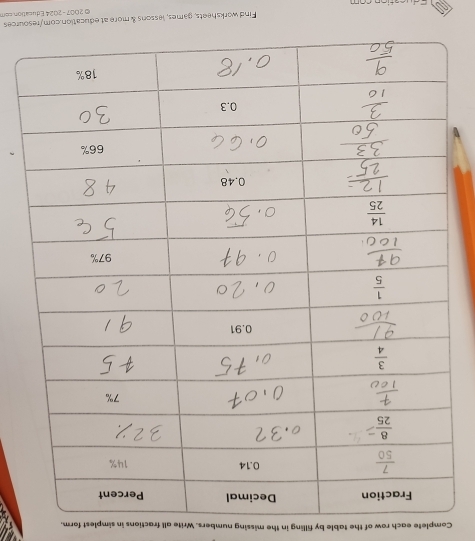 Complete each row of the table by filling in the missing numbers. Write all fractions in simplest form.
Fraction Decimal Percent
7/50 0.14 14%
8/25 = 0.32 32%
7/100 0.07 7%
3/4 0.75 75
91/100 0.91 91
1/5 0.20 20
97/100 0.97 97%
14/25 0.56 56
12/25 = 0.48 48
33/50 0.66 66%
3/10 0.3 30
9/50 0.18 18%
Find worksheets, games, lessons & more at education.com/resources
© 2007 - 2024 Education.com